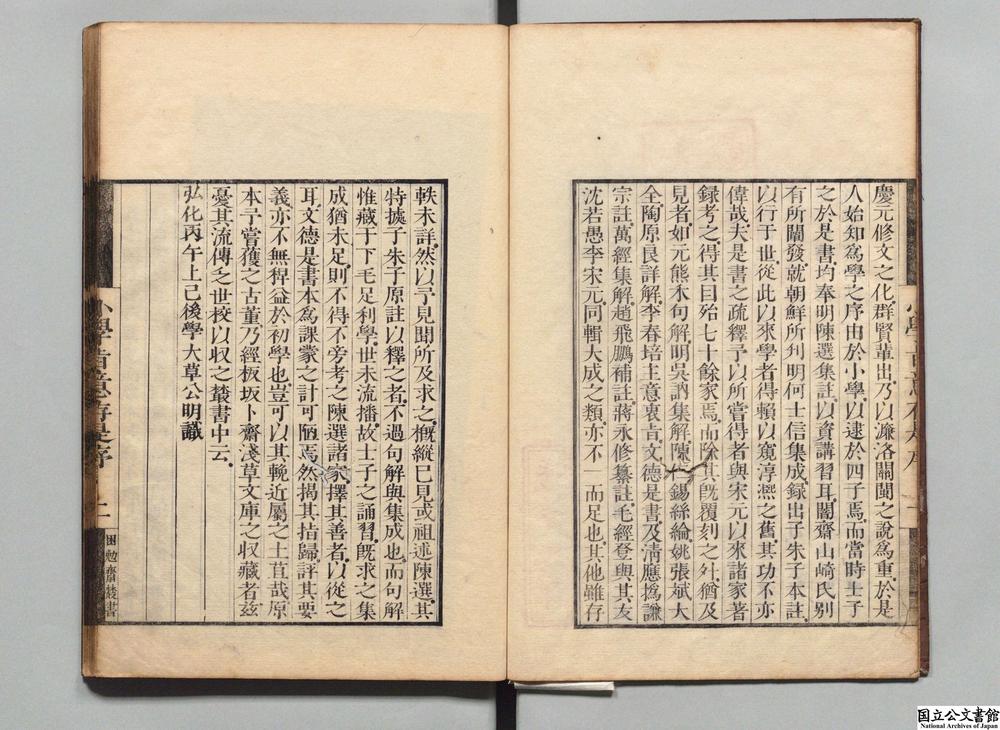 慶元修文之化群賢輩出乃以濂洛關閩之說爲重於是
人始知爲學之序由於小學以逮於四子焉而當時士子
之於是書均奉明陳選集註以資講習耳闇齋山崎氏别
有所闡發就朝鮮所刋明何士信集成録出子朱子本註
以行于世從此以來學者得賴以窺淳熙之舊其功不亦
偉哉夫是書之疏釋予以所嘗得者與宋元以來諸家著
録考之得其目殆七十餘家焉而除其旣覆刻之外猶及
見者如元熊禾句解明吳訥集解陳仁錫絲綸姚張斌大
全陶原良詳解李春培主意衷旨文德是書及淸應撝謙
宗註萬經集解趙飛鵬補註蔣永修纂註毛經登與其友
沈若愚李宋元同輯大成之類亦不一而足也其他雖存
軼未詳然以予見聞所及求之槪縱已見或祖述陳選其
特據子朱子原註以釋之者不過句解與集成也而句解
惟藏于下毛足利學世未流播故士子之誦習旣求之集
成猶未足則不得不旁考之陳選諸家擇其善者以從之
耳文德是書本爲課蒙之計可陋焉然揭其指歸評其要
義亦不無稗益於初學也豈可以其輓近屬之土苴哉原
本予嘗獲之古董乃經板坂卜齋淺草文庫之収藏者玆
憂其流傳之世校以収之叢書中云
弘化丙午上巳後學大草公明識
小學旨意存是序
二
困勉齋叢書
国立公文書館
National Archives of Japan